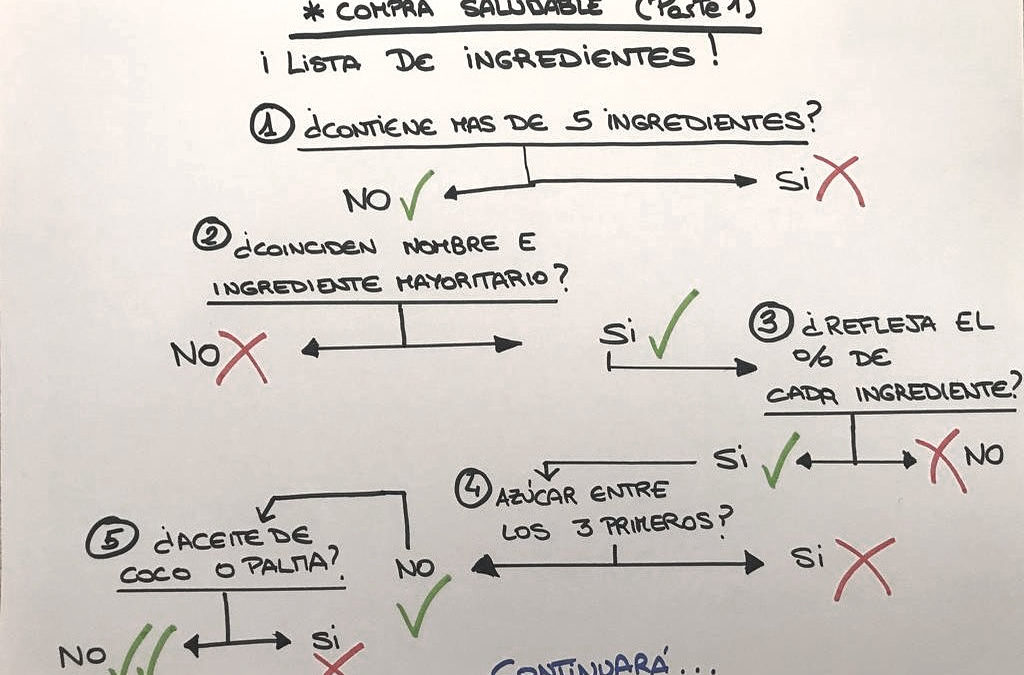 * COMPRA SALUDABLE (Parte 1)
¡ LISTA DE INGREDIENTES !
1 ¿CONTIENE MAS DE 5 INGREDIENTES?
NO
SI
2 ¿COINCIDEN NOMBRE E
INGREDIENTE MAYORITARIO?
NO
SI
3 ¿REFLEJA EL
% DE
CADA INGREDIENTE?
SI
NO
4 AZÚCAR ENTRE
LOS 3 PRIMEROS?
NO
SI
5 ¿ACEITE DE
COCO O PALMA?
NO
SI
CONTINUARÁ...